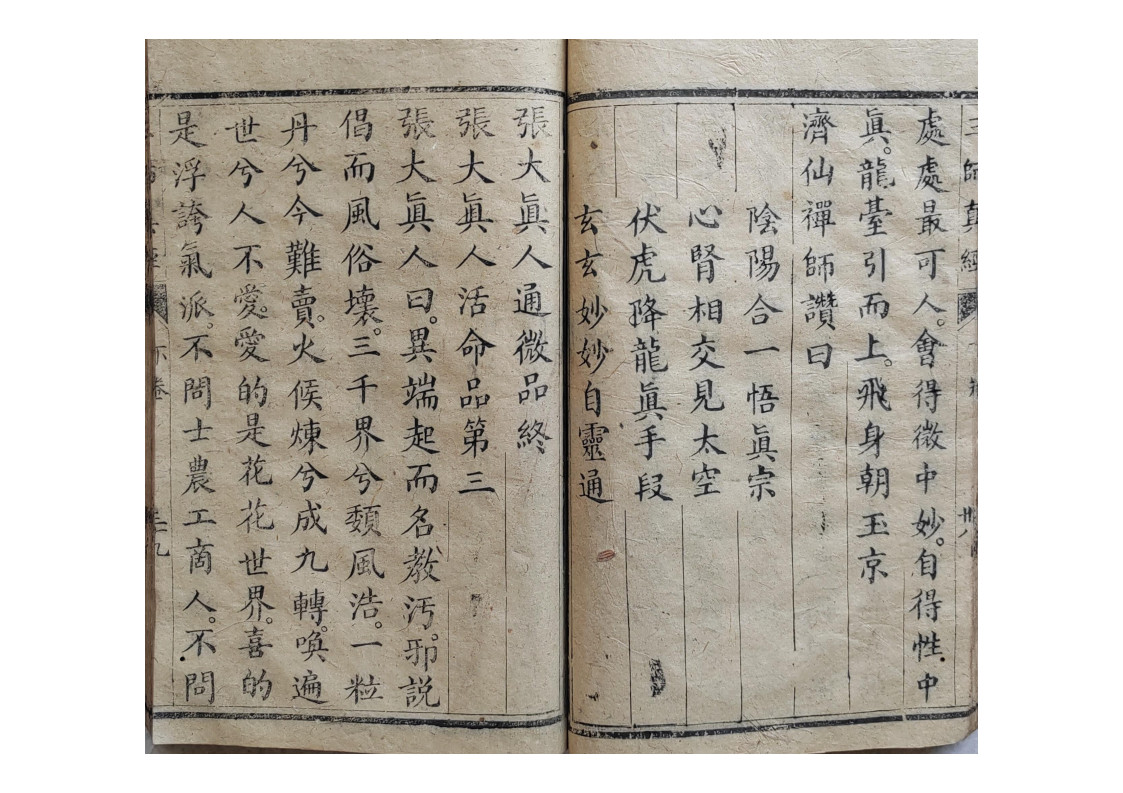 三師真經
卅八
處處最可人。會得微中妙。自得性中
眞。龍臺引而上。飛身朝玉京
濟仙禪師讚曰
陰陽合一悟眞宗
心腎相交見太空
伏虎降龍眞手段
玄玄妙妙自靈通
張大眞人通微品終
張大眞人活命品第三
張大眞人曰。異端起而名教汚。邪説
倡而風俗壞。三千界兮頹風浩。一粒
丹兮今難賣。火候煉兮成九轉。喚遍
世兮人不愛。愛的是花花世界。喜的
是浮誇氣派。不問士農工商人。不問
下卷